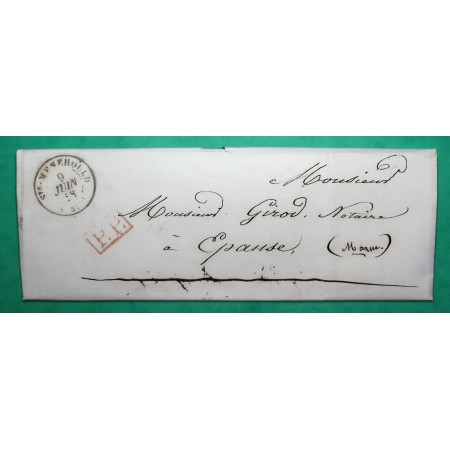 STE-MENEHOULD
9
JUIN
Monsieur
Monsieur Girod, Notaire
P.P.
à Epanse, (Marne.)